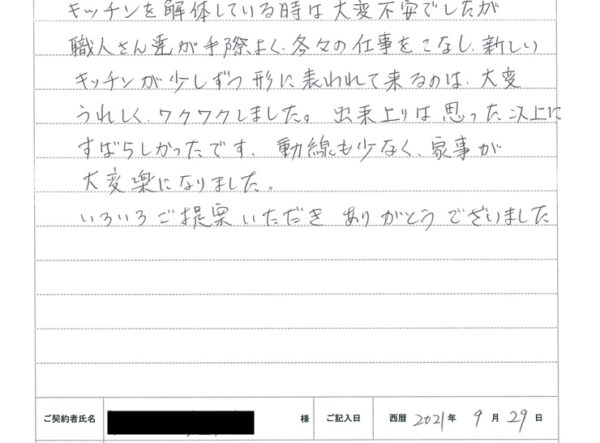 キッチンを解体している時は大変不安でしたが
職人さん達が手際よく、各々の仕事をこなし、新しい
キッチンが少しずつ形に表われて来るのは、大変
うれしく、ワクワクしました。出来上りは思った以上に
すばらしかったです。動線も少なく、家事が
大変楽になりました。
いろいろご提案いただき ありがとうございました
ご契約者氏名 様 ご記入日 西暦 2021年 9月 29日